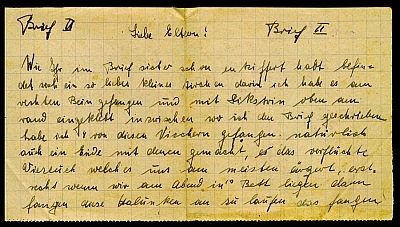 Brief II Liebe Eltern! Brief II
Wie Ihr im Brief sicher schon entziffert habt befin-
det sich ein so liebes kleines darin ich habe es am
rechten Bein gefangen und mit oben am
rand eingeklebt inzwischen wo ich den Brief geschrieben
habe ich 4 von diesen Viechern gefangen. natürlich
auch ein Ende mit denen gemacht, es das verfluchte
Viehzeich welches uns am meisten ärgert, erst
recht wenn wir am Abend in's Bett liegen dann
fangen diese Halunken an zu laufen das fangen